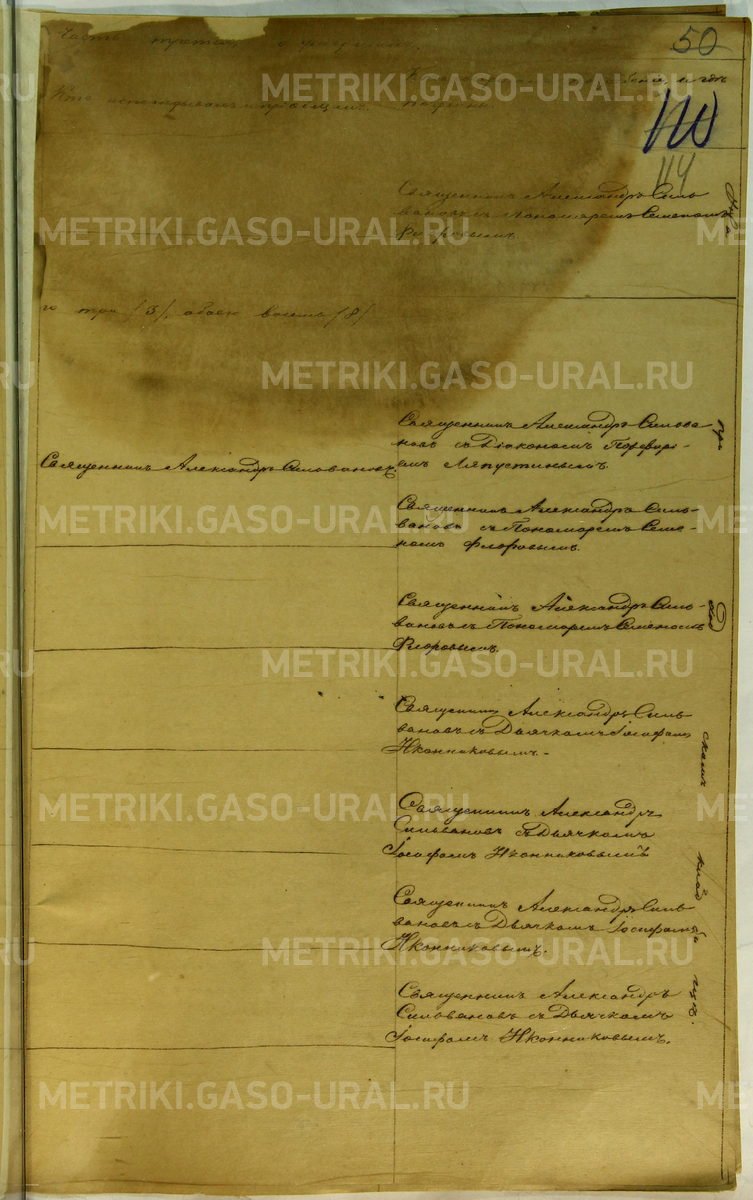 Часть третья, о умершихъ.
50
Кто исповѣдывалъ и пріобщалъ.
погребены.
110
114
Священникъ Александръ Силь
вановъ съ Пономаремъ Семеномъ
Флоровымъ.
го три /3/, обоего восемь /8/
Священникъ Александръ Сильва
новъ съ Діакономъ Порфирі-
емъ Ляпустинымъ.
Священникъ Александръ Сильвановъ.
Священникъ Александръ Силь-
вановъ съ Пономаремъ Семе-
номъ Флоровымъ.
Священникъ Александръ Силь-
вановъ съ Пономаремъ Семеномъ
Флоровымъ.
Священникъ Александръ Силь
вановъ съ Дьячкомъ Іосифомъ
Иконниковымъ.-
Священникъ Александръ
Сильвановъ съ Дьячкомъ
Іосифомъ Иконниковымъ
Священникъ Александръ Силь
вановъ съ Дьячкомъ Іосифомъ
Иконниковымъ.
Священникъ Александръ
Сильвановъ съ Дьячкомъ
Іосифомъ Иконниковымъ.
METRIKI.GASO-URAL.RU